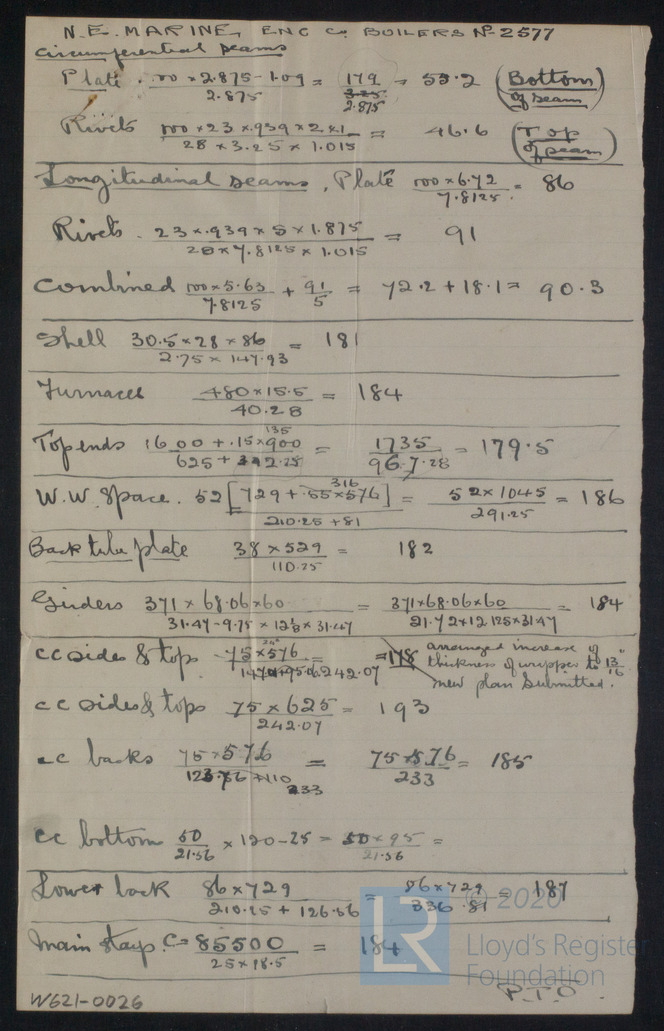 N.E. MARINE, ENG Co BOILERS No 2577
Circumferential seams
Plate. 100 × 2.875 - 1.09 / 2.875 = 179 / 3.25 2.875 = 53.2 (Bottom of seam)
Rivets 100 × 23 × .939 × 2 × 1 / 28 × 3.25 × 1.015 = 46.6 (Top of seam)
Longitudinal seams, Plate 100 × 6.72 / 7.8125 = 86
Rivets. 23 × .939 × 5 × 1.875 / 28 × 7.8125 × 1.015 = 91
Combined 100 × 5.63 / 7.8125 + 91 / 5 = 72.2 + 18.1 = 90.3
Shell 30.5 × 28 × 86 / 2.75 × 147.93 = 181
Furnaces 480 × 15.5 / 40.28 = 184
135
Top ends 1600 + .15 × 900 / 625 + 342.25 = 1735 / 967.28 = 179.5
316
W.W. Space. 52 [729 + .55 × 576] / 210.25 + 81 = 52 × 1045 / 291.25 = 186
Back tube plate 38 × 529 / 110.25 = 182
Girders 371 × 68.06 × 60 / 31.47 - 9.75 × 12 1/8 × 31.47 = 371 × 68.06 × 60 / 21.72 × 12.125 × 31.47 = 184
cc sides & tops 75 × 576 / 242.07 = 178 arranged increase of
thickness of wrapper to 13/16"
new plan submitted.
cc sides & tops 75 × 625 / 242.07 = 193
cc backs 75 × 576 / 233 = 75 × 576 / 233 = 185
cc bottom 50 / 21.56 × 120 - 25 = 50 × 95 / 21.56 =
Lower back 86 × 729 / 210.25 + 126.56 = 86 × 729 / 336.81 = 187
Main stays. C = 85500 / 25 × 18.5 = 184
P.T.O.
W621-0026
© 2020
LR
Lloyd's Register
Foundation